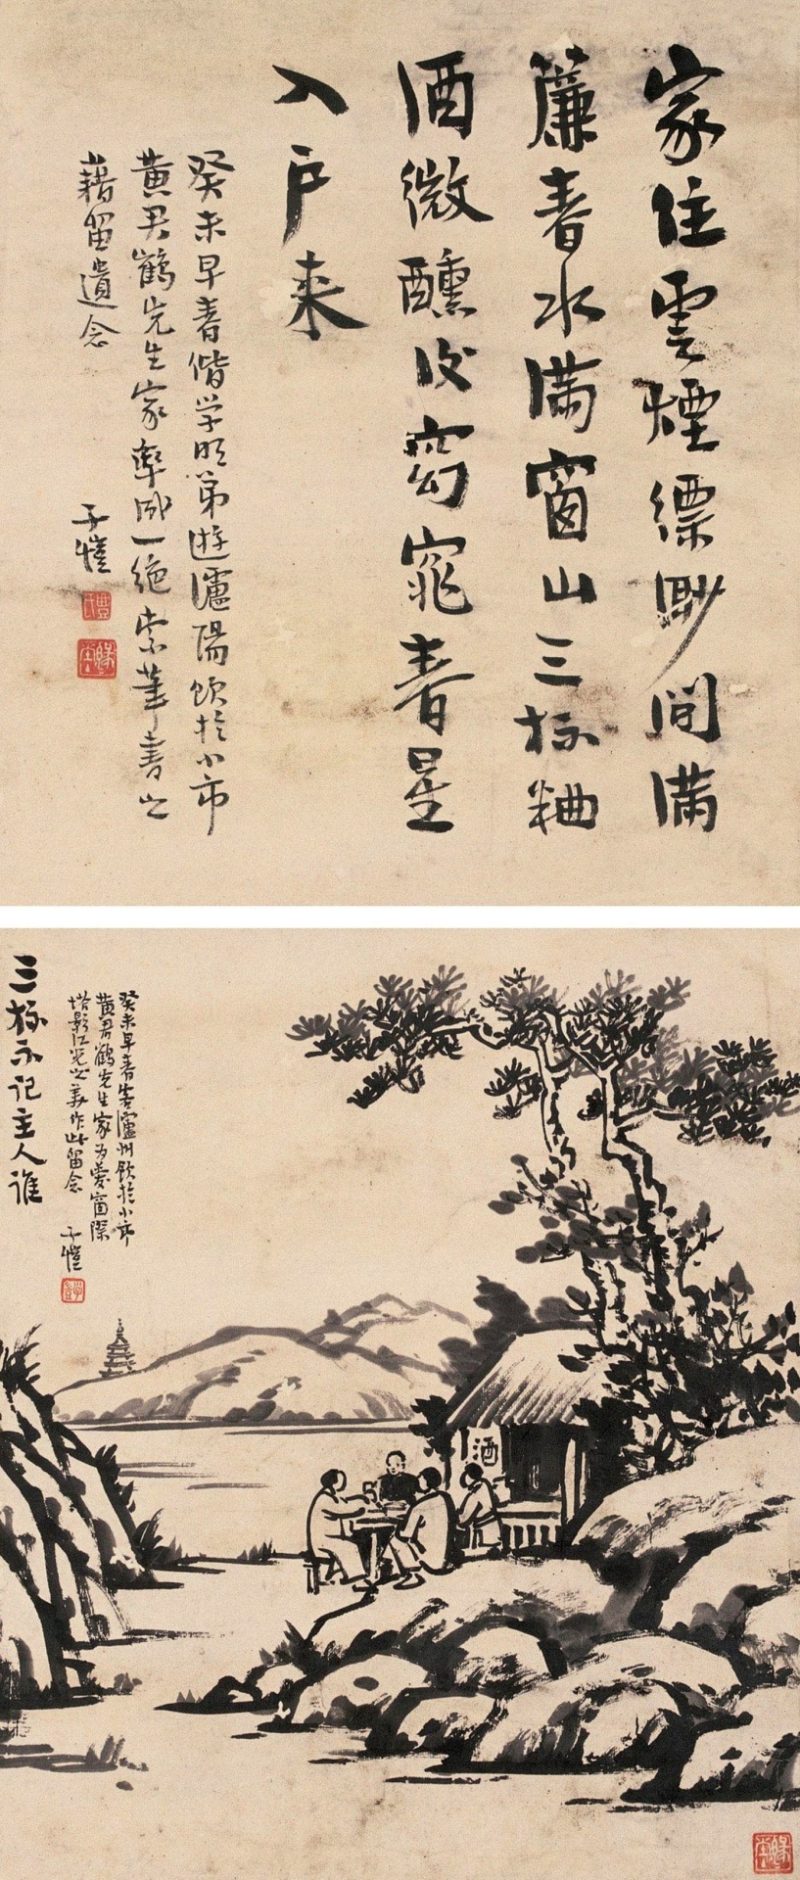 家住雲煙縹緲間滿
簾春水滿窗山三杯粬
酒微醺後窈窕春星
入戶來
癸未早春偕学明弟遊瀘陽飲於小市
黄君鶴先生家率成一絶索筆書之
藉留遺念
子愷
豐氏
三杯不記主人誰
癸未早春客瀘州飲於小市
黄君鶴先生家為愛窗際
塔影江光之美作此留念 子愷
酒